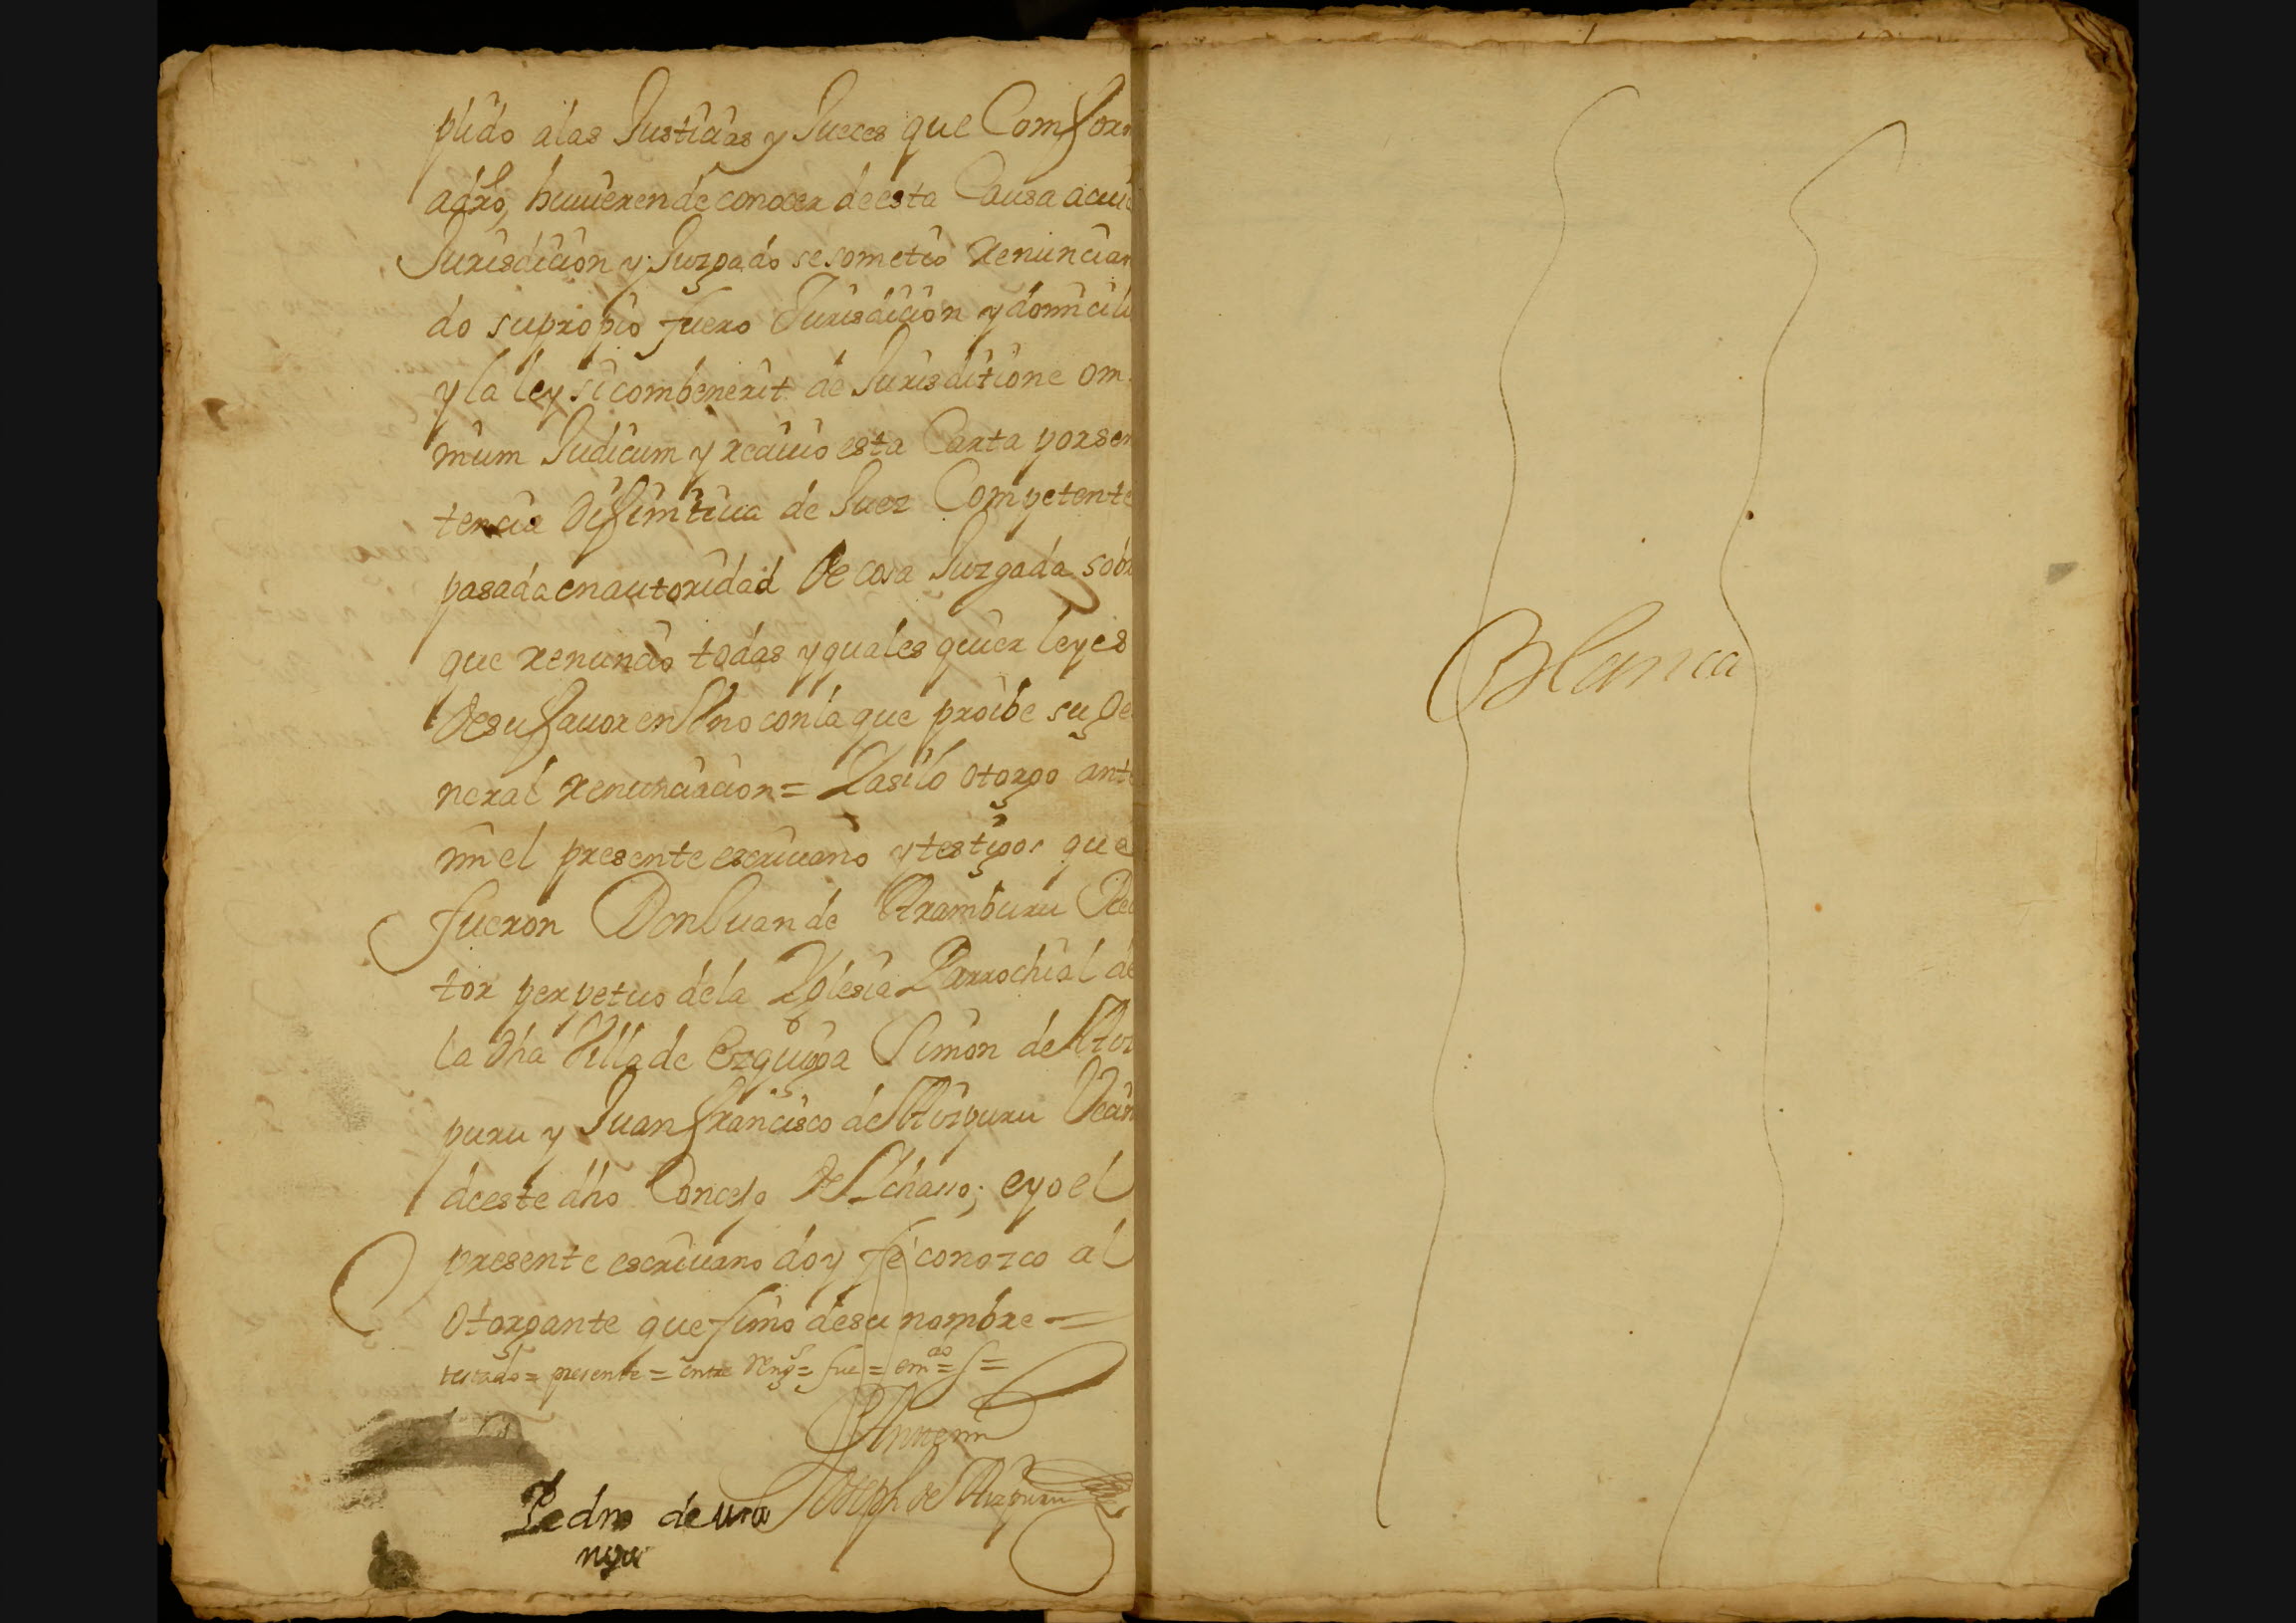 plido alas Justicias y Jueces que Comfor
adro, huuieren de conocer de esta Causa acuia
Jurisdicion y Juzgado se sometio renuncian
do su propio fuero Jurisdicion y domicilio
y la ley si combenerit de Jurisditione om
nium Judicum y reciuio esta Carta por sen
tencia Difinitiua de Juez Competente
pasada en autoridad De cosa Juzgada sobre
que renuncio todas y quales quier leyes
De su fauor en Uno con la que proibe su Ge
neral renunciacion = Y asi lo otorgo ante
mi el presente escriuano y testigos que
fueron Don Juan de Aramburu Rec
tor perpetuo de la Yglesia Parrochial de
la Dha Villa de Ezquioga Simon de Aiz
puru y Juan Francisco de Aizpuru Vecin
de este dho Concejo de Ychasso; e yo el
presente escriuano doy fe conozco al
Otorgante que firmo de su nombre =
testado = presente = entre Reng.s = fue = em.do = f =
Ante mi
Joseph de Aizpuru
Pedro de ura
nga
Blanca